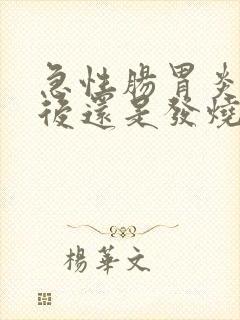 急性腸胃炎
後還是發燒
楊華文